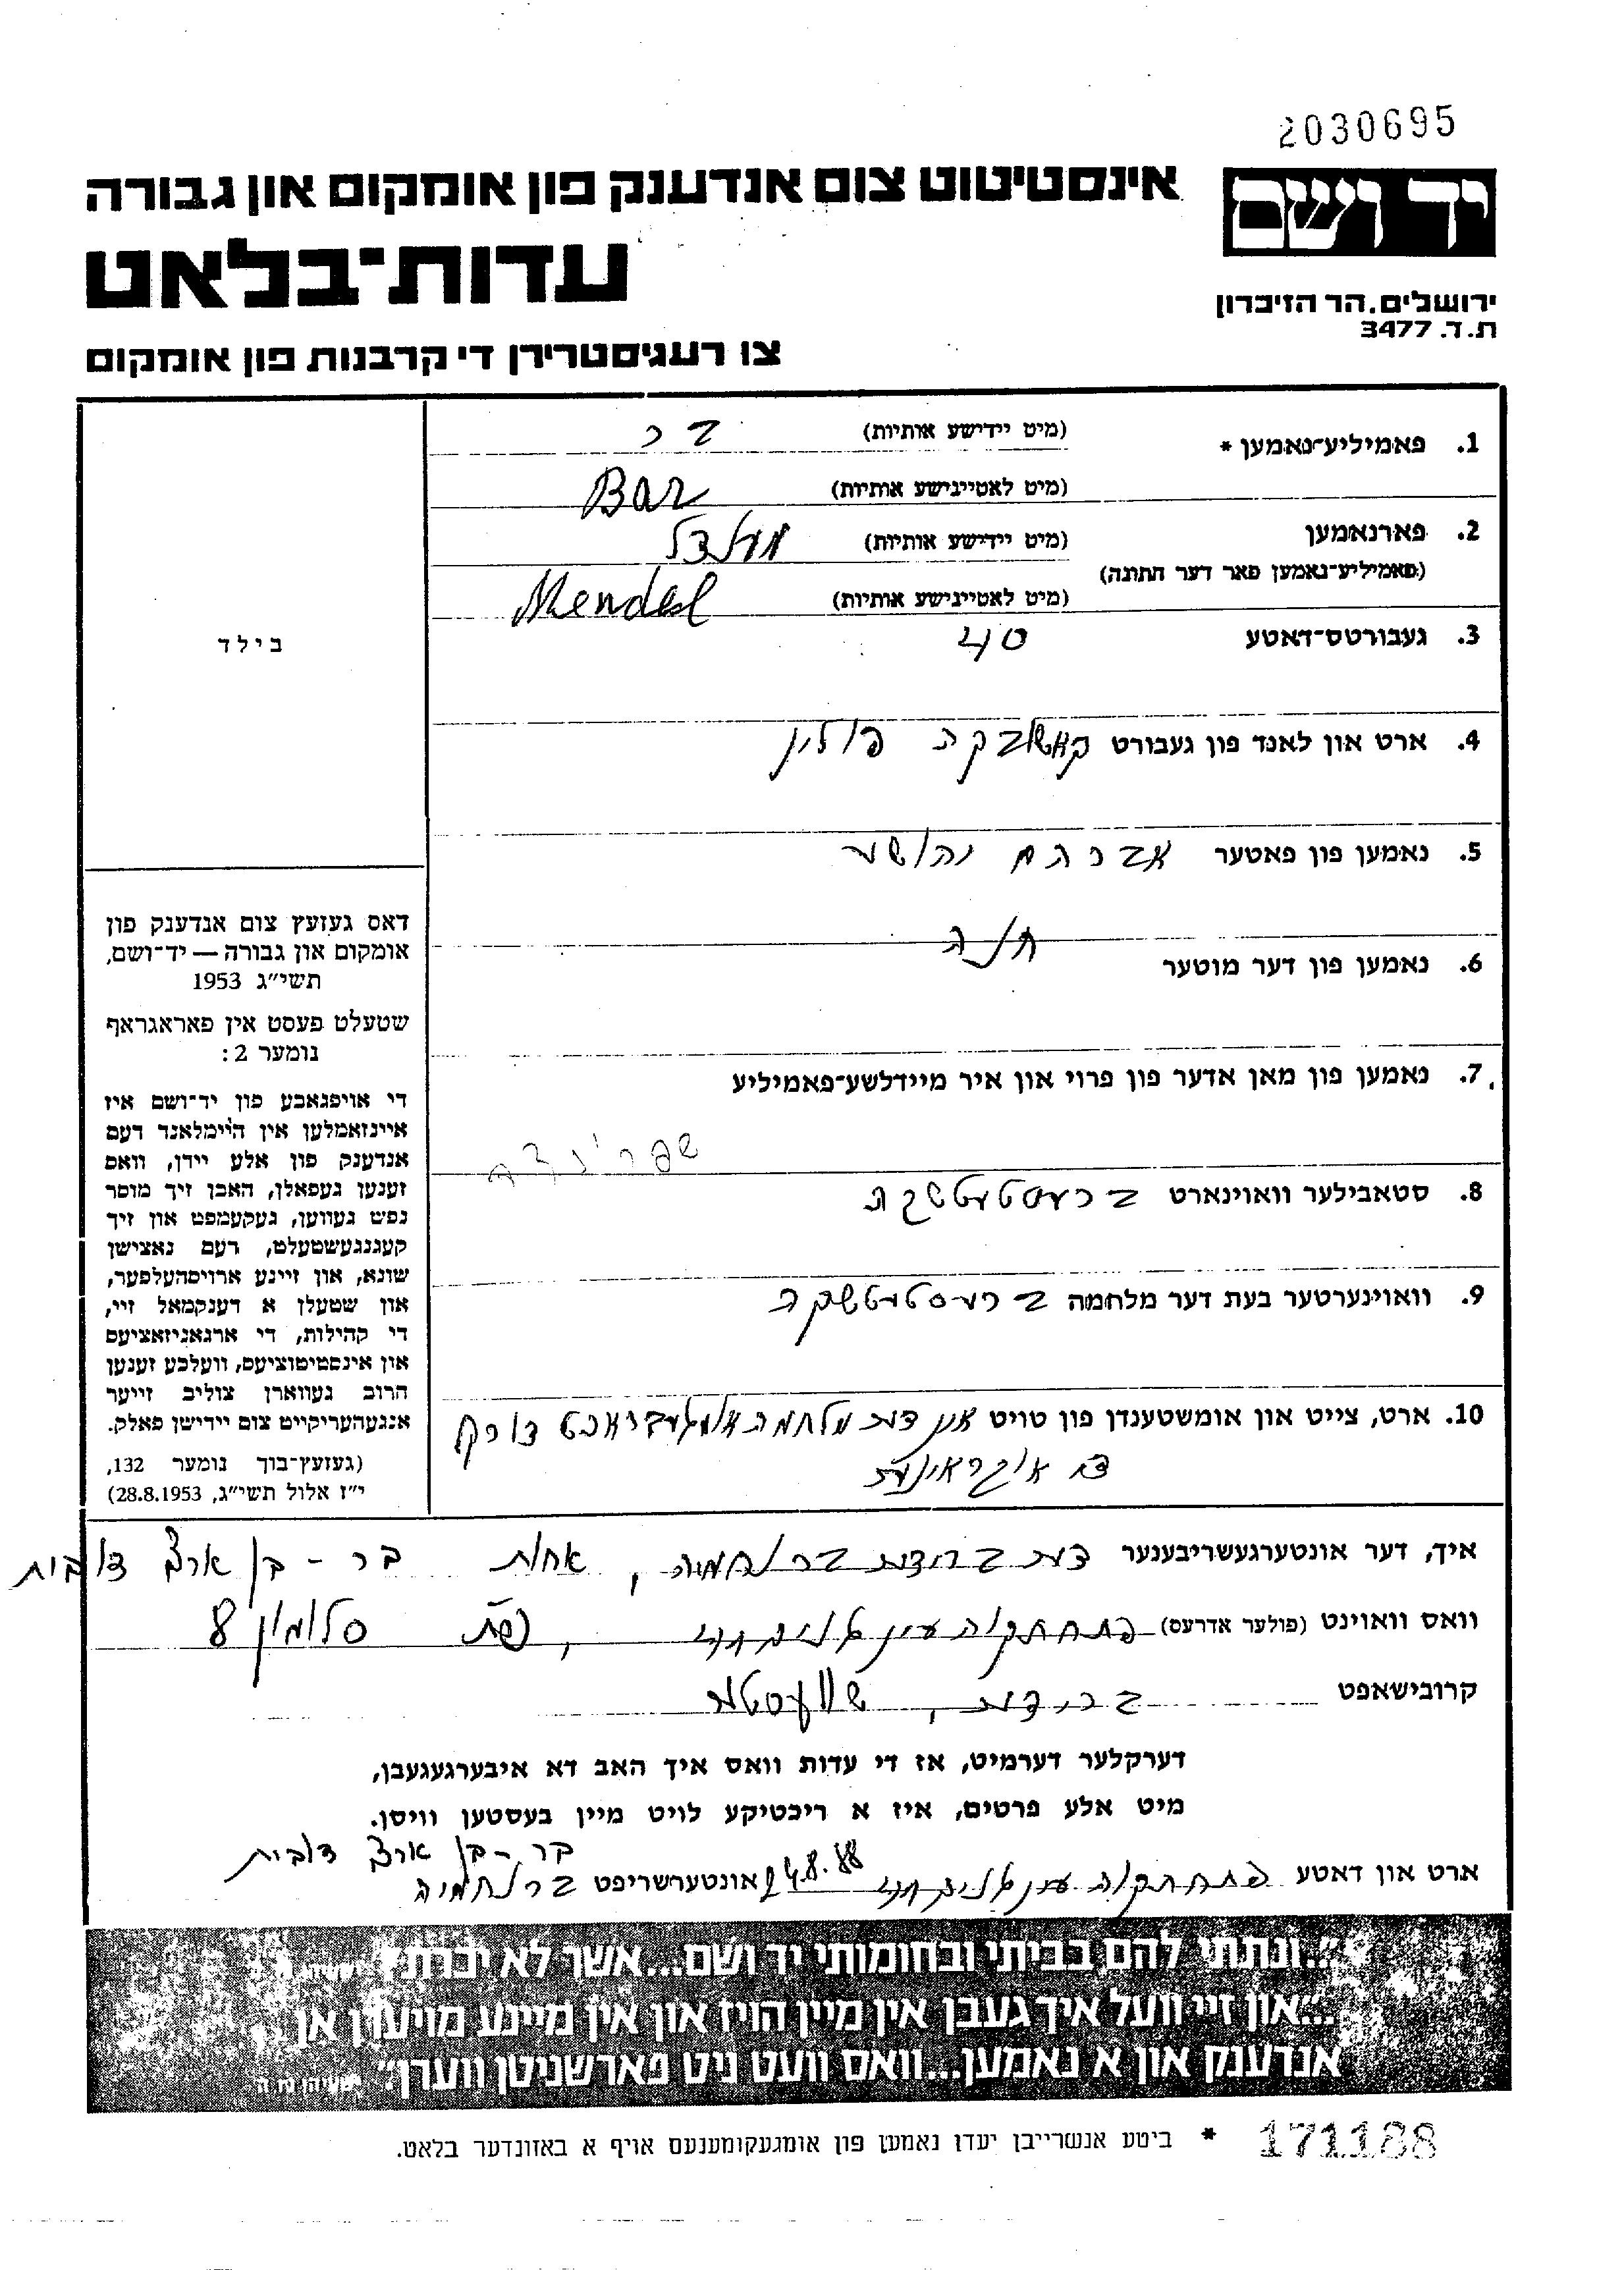 2030695
יד ושם
אינסטיטוט צום אנדענק פון אומקום און גבורה
עדות־בלאט
ירושלים. הר הזיכרון
ת.ד. 3477
צו רעגיסטרירן די קרבנות פון אומקום
1. פאמיליע־נאמען * (מיט יידישע אותיות) בר
(מיט לאטיינישע אותיות) Bar
2. פארנאמען (מיט יידישע אותיות) מענדל
(פאמיליע־נאמען פאר דער חתונה)
(מיט לאטיינישע אותיות) Mendel
3. געבורטס־דאטע 40
4. ארט און לאנד פון געבורט פולין
5. נאמען פון פאטער אברהם יהושע
6. נאמען פון דער מוטער חנה
7. נאמען פון מאן אדער פון פרוי און איר מיידלשע־פאמיליע
שפרינצה
8. סטאבילער וואוינארט ברעסטעטשקה
9. וואוינערטער בעת דער מלחמה ברעסטעטשקה
10. ארט, צייט און אומשטענדן פון טויט מלחמה אומגעבראכט דורק
בילד
דאס געזעץ צום אנדענק פון
אומקום און גבורה — יד־ושם,
תשי״ג 1953
שטעלט פעסט אין פאראגראף
נומער 2:
די אויפגאבע פון יד־ושם איז
איינזאמלען אין היימלאנד דעם
אנדענק פון אלע יידן, וואס
זענען געפאלן, האבן זיך מוסר
נפש געווען, געקעמפט און זיך
קעגנגעשטעלט, דעם נאצישן
שונא, און זיינע ארויסהעלפער,
און שטעלן א דענקמאל זיי,
די קהילות, די ארגאניזאציעס
און אינסטיטוציעס, וועלכע זענען
חרוב געווארן צוליב זייער
אנגעהעריקייט צום יידישן פאלק.
(געזעץ־בוך נומער 132,
י״ז אלול תשי״ג, 28.8.1953)
איך, דער אונטערגעשריבענער ברנחמיה, אחות בר - בן ארצי
וואס וואוינט (פולער אדרעס) סלומון 8
קרובישאפט שוועסטער
דערקלער דערמיט, אז די עדות וואס איך האב דא איבערגעגעבן,
מיט אלע פרטים, איז א ריכטיקע לויט מיין בעסטען וויסן.
בר - בן ארצי
ארט און דאטע 24.8.88 אונטערשריפט ברנחמיה
״...ונתתי להם בביתי ובחומותי יד ושם...אשר לא יכרת״ ישעיהו נו ה
״...און זיי וועל איך געבן אין מיין הויז און אין מיינע מויערן אן
אנדענק און א נאמען...וואס וועט ניט פארשניטן ווערן״ ישעיהו נו ה
* ביטע אנשרייבן יעדן נאמען פון אומגעקומענעם אויף א באזונדער בלאט.
171188